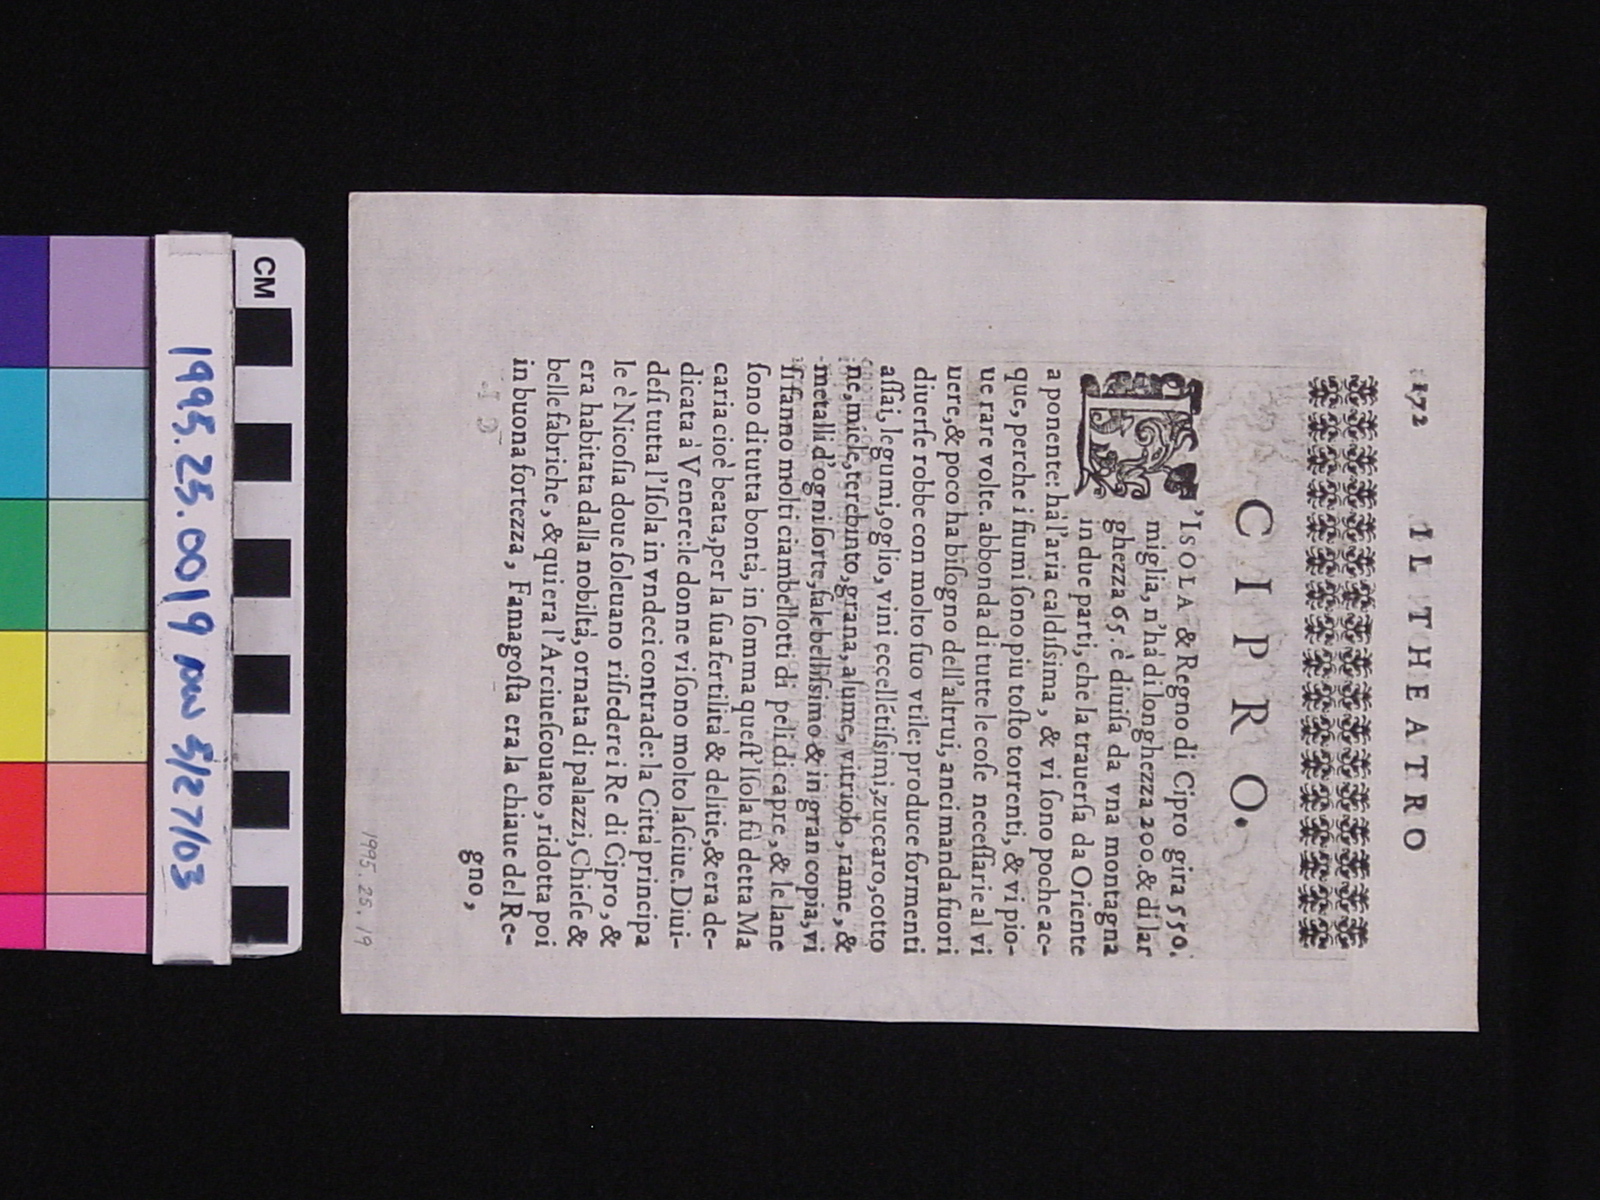 172 IL THEATRO
CIPRO.
L'ISOLA & Regno di Cipro gira 550.
miglia, n'hà di longhezza 200. & di lar
ghezza 65. è diuiſa da vna montagna
in due parti, che la trauerſa da Oriente
a ponente: hà l'aria caldiſsima, & vi ſono poche ac-
que, perche i fiumi ſono piu toſto torrenti, & vi pio-
ue rare volte. abbonda di tutte le coſe neceſſarie al vi
uere, & poco ha biſogno dell'altrui, anci manda fuori
diuerſe robbe con molto ſuo vtile: produce formenti
aſſai, legumi, oglio, vini eccellẽtiſsimi, zuccaro, cotto
ne, miele, terebinto, grana, alume, vitriolo, rame, &
metalli d'ogni ſorte, ſale belliſsimo & in gran copia, vi
ſi fanno molti ciambellotti di peli di capre, & le lane
ſono di tutta bontà, in ſomma queſt'Iſola fù detta Ma
caria cioè beata, per la ſua fertilità & delitie, & era de-
dicata à Venere: le donne vi ſono molto laſciue. Diui-
deſi tutta l'Iſola in vndeci contrade: la Città principa
le è Nicoſia doue ſoleuano riſiedere i Re di Cipro, &
era habitata dalla nobiltà, ornata di palazzi, Chieſe &
belle fabriche, & qui era l'Arciueſcouato, ridotta poi
in buona fortezza, Famagoſta era la chiaue del Re-
gno,
1995.25.19
CM
1995.25.0019 nw 5/27/03